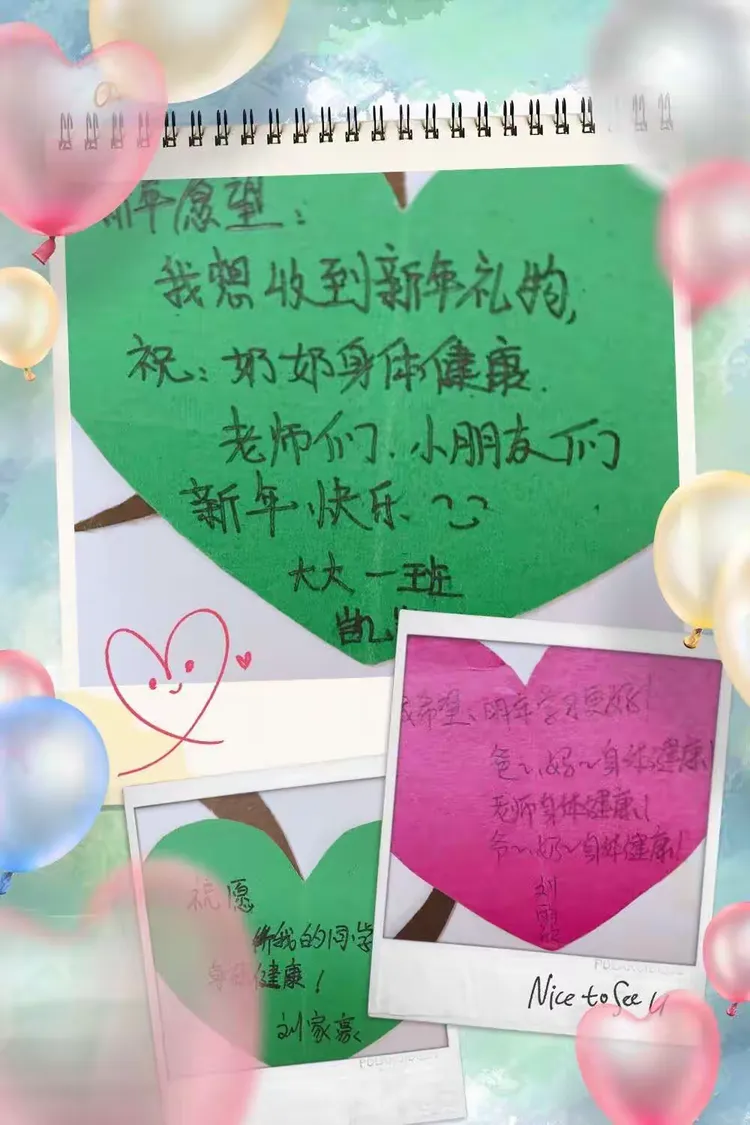 新年愿望：
我想收到新年礼物，
祝：奶奶身体健康.
老师们.小朋友们
新年快乐
大大一班
凯
我希望：明年学习更好！
爸～、妈～身体健康！
老师身体健康！
爷～、奶～身体健康！
刘
祝愿
我的同学
身体健康！
刘家豪
Nice to See U